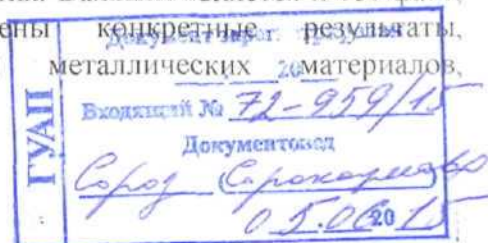 ены конкретные результаты,
металлических материалов,
ГУАП
Документ зарег.
20
Входящий № 72-959/15
Документовед
05.06 20 15